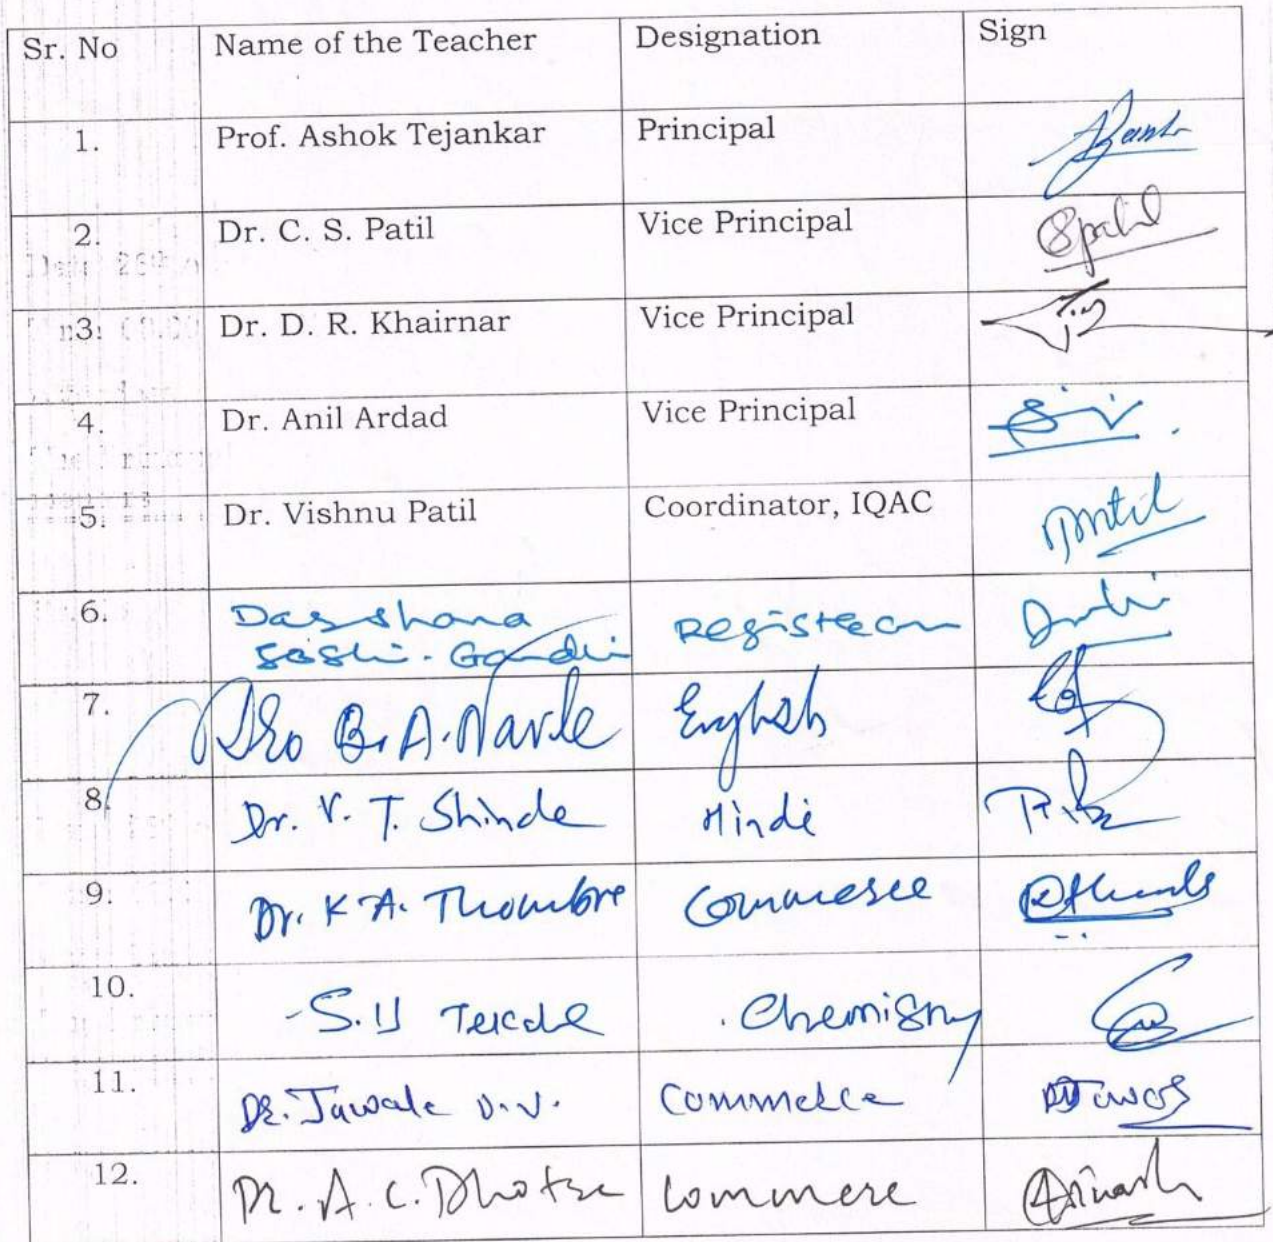 Sr. No Name of the Teacher Designation Sign
1. Prof. Ashok Tejankar Principal
2. Dr. C. S. Patil Vice Principal Spatil
3. Dr. D. R. Khairnar Vice Principal
4. Dr. Anil Ardad Vice Principal
5. Dr. Vishnu Patil Coordinator, IQAC
6. Darshana Registrar
Joshi - Gandhi
7. B. A. Navle English
8. Dr. V. T. Shinde Hindi
9. Dr. K A. Thombre Commerce
10. S. U Chemistry
11. Dr. Jawale V. V. Commerce
12. Dr. A. C. Dhotre Commerce